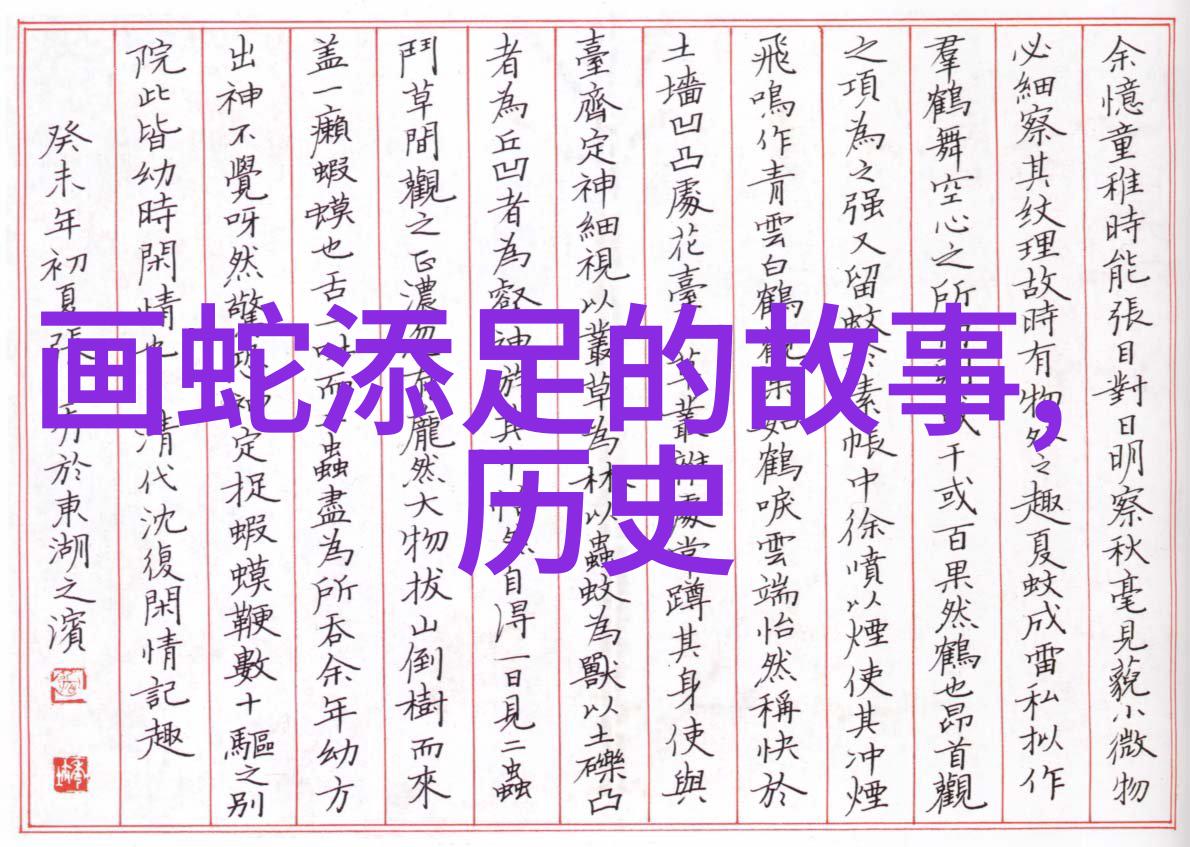 画蛇添足的故事,
历史
余憶童稚時能張目對日明察秋毫見藐小微物
必細察其纹理故時有物外之趣夏蚊成雷私拟作
羣鶴舞空心之所干或百果然鶴也昂首觀
之項為之强又留蚊素帳中徐噴以煙使其冲煙
飛鳴作青雲白鶴觀如鶴唳雲端怡然稱快於
土墻凹凸處花臺草叢雜處常蹲其身使與
臺齊定神細視以叢草為林以蟲蚊為獸以土礫凸
者為丘凹者為神游其中怡然自得一日見二蟲
鬥草間觀之正濃忽有龐然大物拔山倒樹而來
盖一癩蝦蟆也舌一吐而二蟲盡為所吞余年幼方
出神不覺呀然驚恐神定捉蝦蟆鞭數十驅之别
院此皆幼時閑情也 清代沈復閑情記趣
癸未年初夏張於東湖之濱